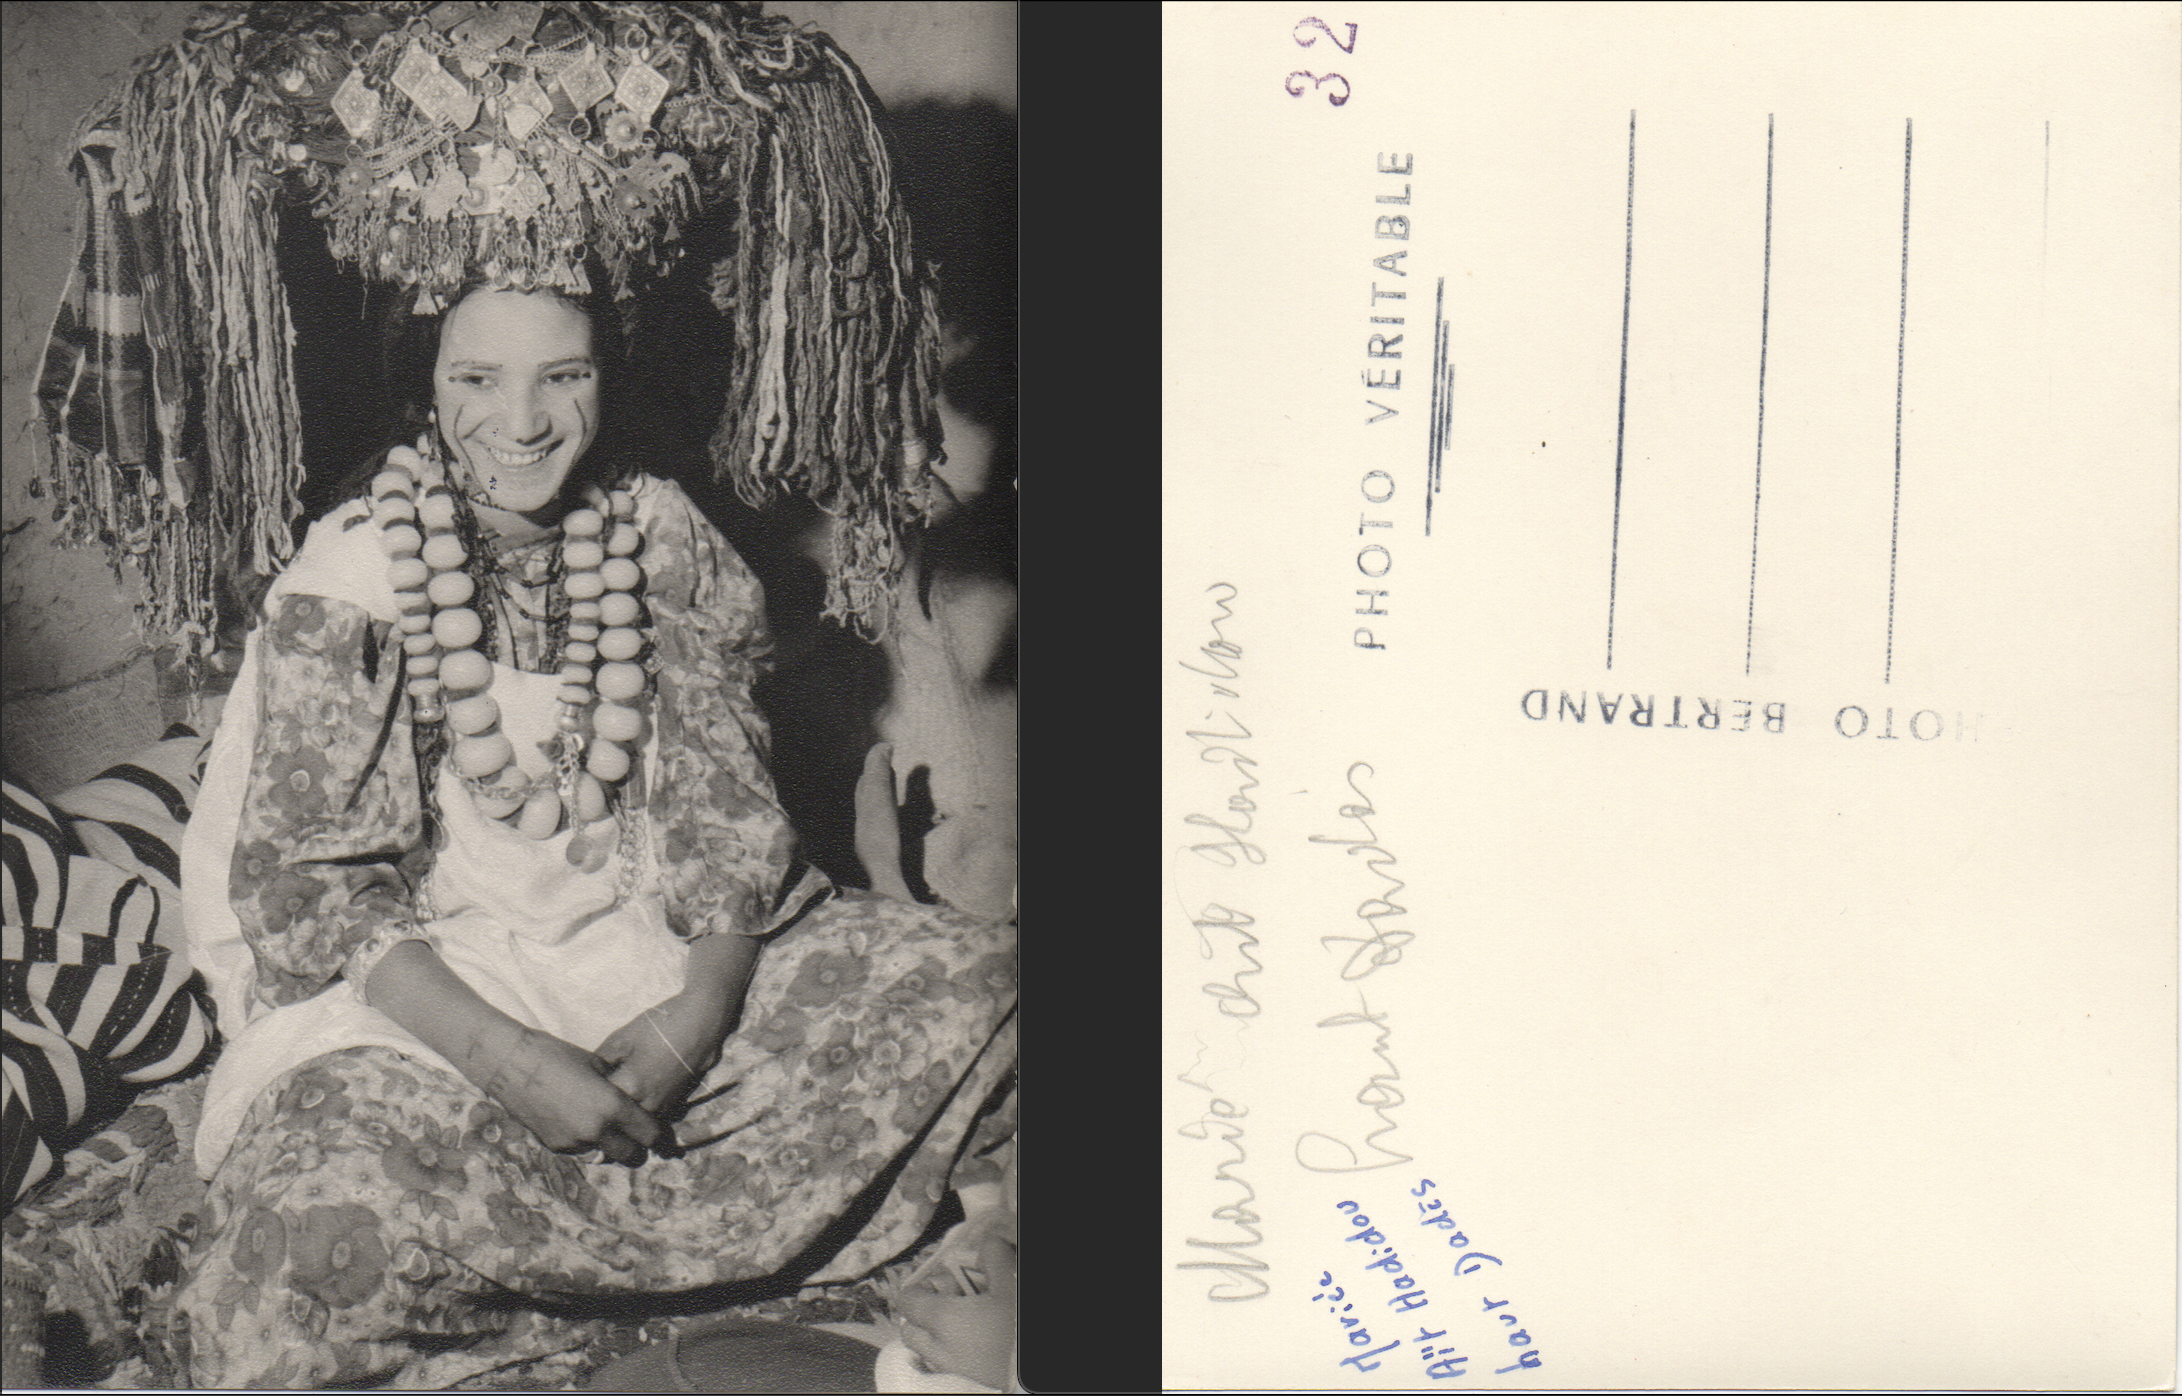 32
PHOTO VÉRITABLE
HOTO BERTRAND
Mariée Aït Hadidou
haut Dadès
Mariée
Aït Hadidou
haut Dadès